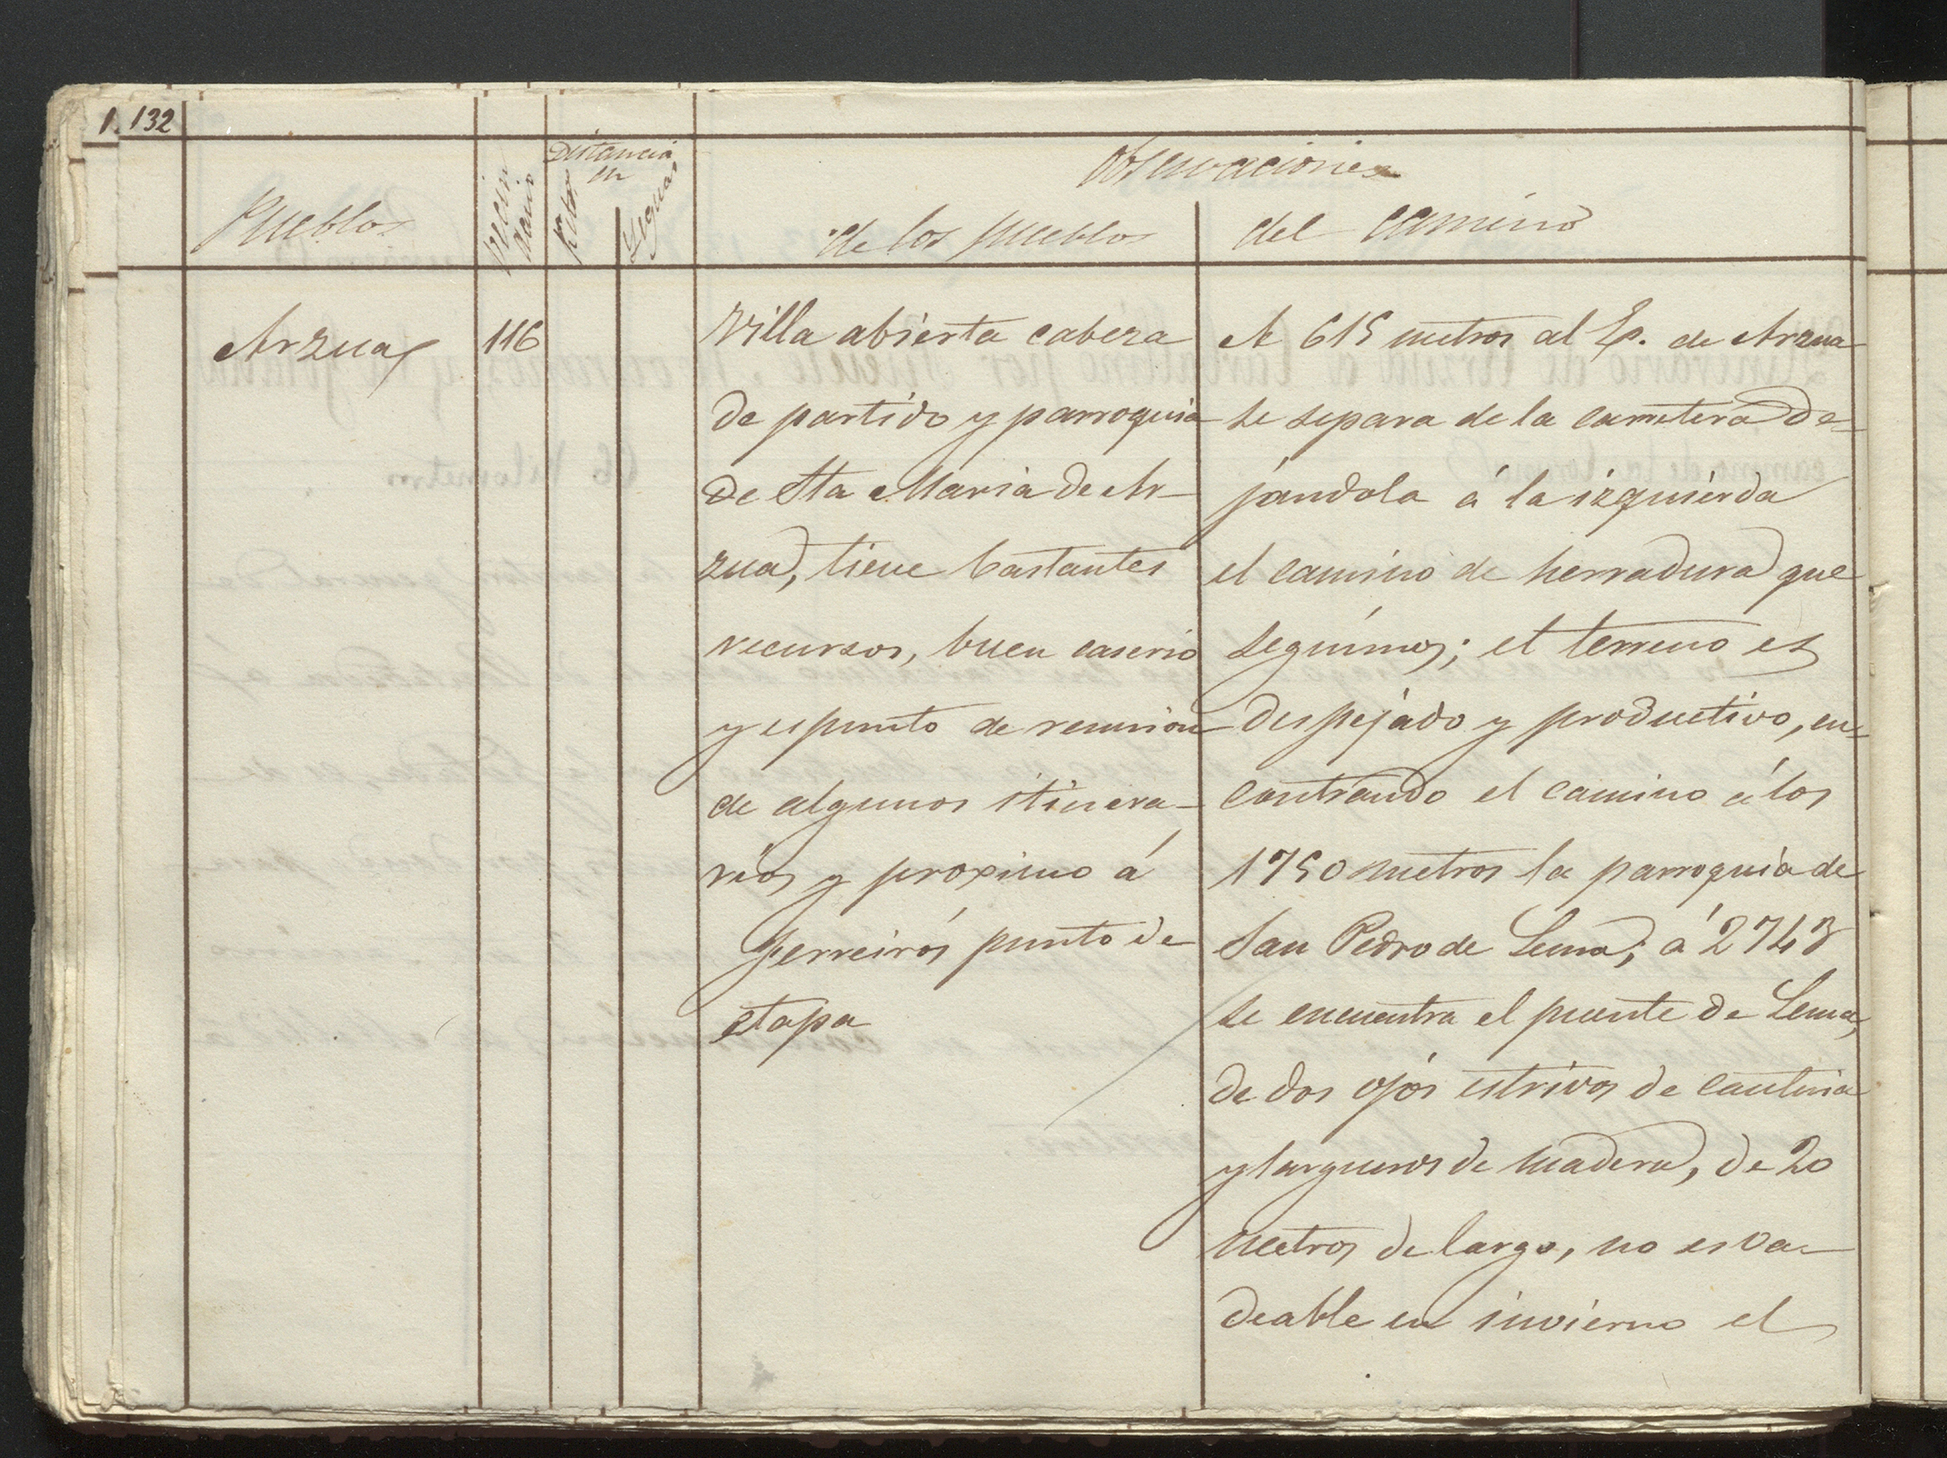 1. 132
Pueblos
Vecin
dario
Distancia
en
Kilor.
Leguas
Observaciones
de los pueblos
del camino
Arzua
116
Villa abierta cabeza
de partido y parroquia
de Sta Maria de Ar-
zua, tiene bastantes
recursos, buen caserio
y es punto de reunion
de algunos itinera-
rios y proximo á
Ferreirós punto de
etapa
A 615 metros al E. de Arzua
se separa de la carretera de=
jandola á la izquierda
el camino de herradura que
seguimos; el terreno es
despejado y productivo, en=
contrando el camino á los
1750 metros la parroquia de
San Pedro de Lema; á 2743
se encuentra el puente de Lema,
de dos ojos estrivos de canteria
y largueros de madera, de 20
metros de largo, no es va-
deable en invierno el